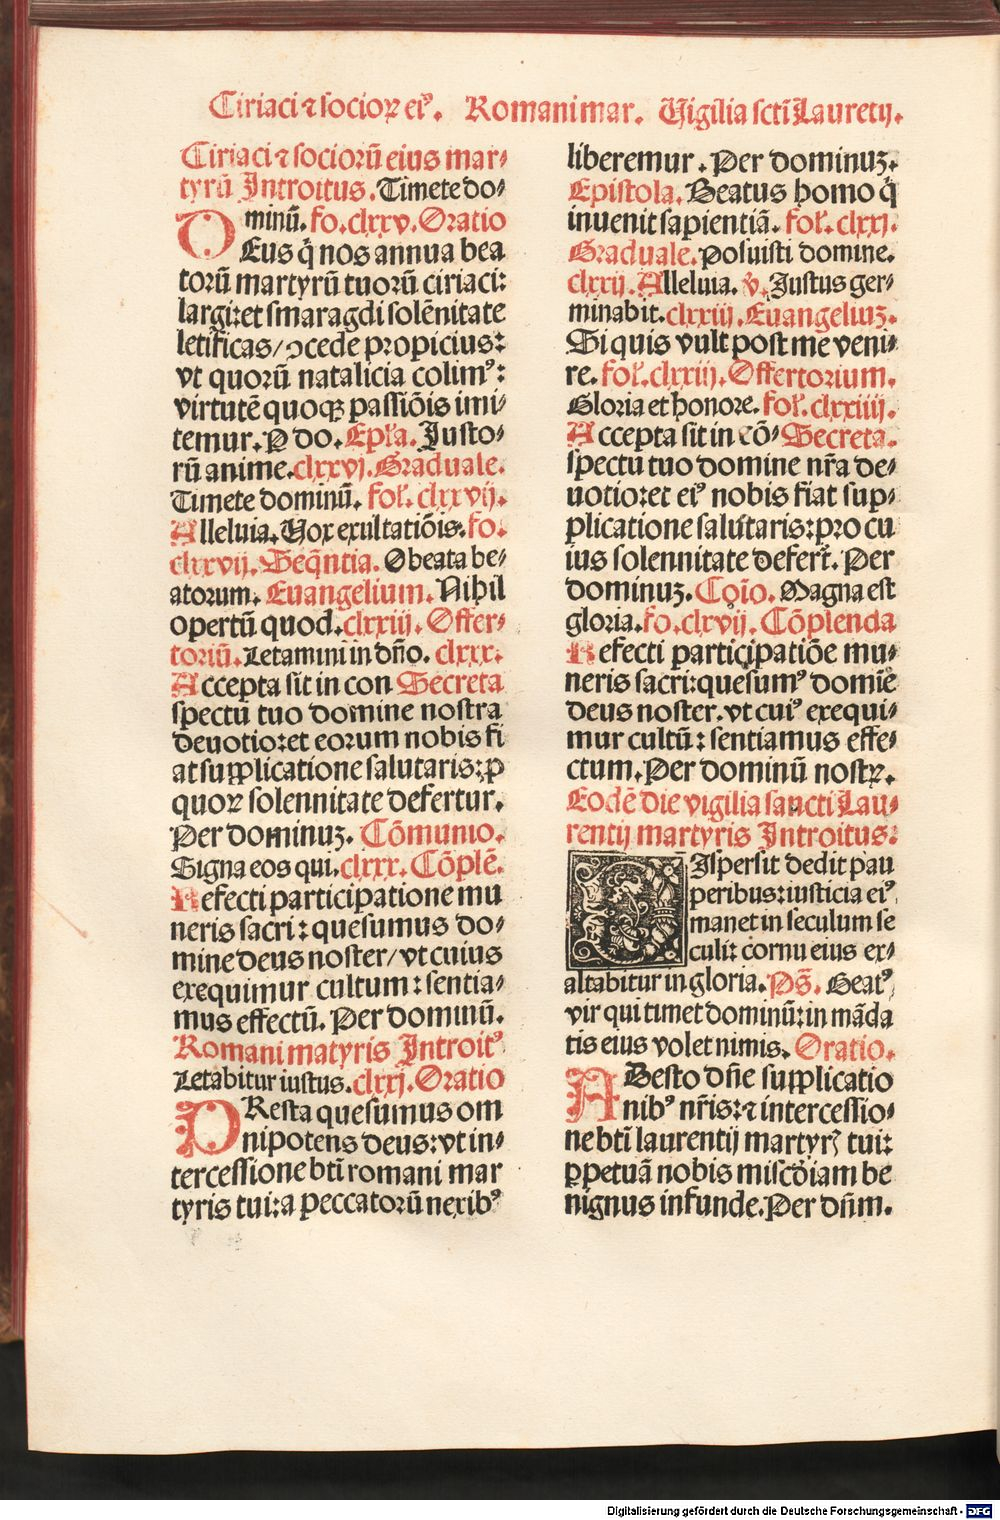 Ciriaci ⁊ socioꝝ eiꝰ. Romani mar. Vigilia scti Lauretij.
Ciriaci ⁊ sociorū eius mar⸗
tyrū Introitus. Timete do⸗
minū. fo. clxxv. Oratio
DEus q̄ nos annua bea
torū martyrū tuorū ciriaci:
largi: et smaragdi solēnitate
letificas/ ꝯcede propicius:
vt quorū natalicia colimꝰ:
virtutē quoqꝫ passiōis imi⸗
temur. P do. Epl'a. Justo⸗
rū anime. clxxvj. Graduale.
Timete dominū. fol'. clxxvij.
Alleluia. Vox exultatiōis. fo.
clxxvij. Seqn̄tia. O beata be⸗
atorum. Euangelium. Nihil
opertū quod. clxxiij. Offer⸗
toriū. Letamini in dn̄o. clxxx.
Accepta sit in con Secreta
spectu tuo domine nostra
deuotio: et eorum nobis fi
at supplicatione salutaris: ꝓ
quoꝝ solennitate defertur.
Per dominuꝫ. Cōmunio.
Signa eos qui. clxxx. Cōplē.
Refecti participatione mu
neris sacri: quesumus do⸗
mine deus noster/ vt cuius
exequimur cultum: sentia⸗
mus effectū. Per dominū.
Romani matyris Introitꝰ
Letabitur iustus. clxxj. Oratio
PResta quesumus om
nipotens deus: vt in⸗
tercessione bti romani mar
tyris tui: a peccatorū nexibꝰ
liberemur. Per dominuꝫ.
Epistola. Beatus homo q̄
inuenit sapientiā. fol'. clxxj.
Graduale. Posuisti domine.
clxxij. Alleluia. v̄. Justus ger⸗
minabit. clxxiij. Euangeliuꝫ.
Si quis vult post me veni⸗
re. fol'. clxxiij. Offertorium.
Gloria et honore. fol'. clxxiiij.
Accepta sit in cō⸗ Secreta.
spectu tuo domine nr̄a de⸗
uotio: et eiꝰ nobis fiat sup⸗
plicatione salutaris: pro cu
ius solennitate defert'. Per
dominuꝫ. Cōio. Magna est
gloria. fo. clxvij. Cōplenda
Refecti participatiōe mu⸗
neris sacri: quesumꝰ domīe
deus noster. vt cuiꝰ exequi⸗
mur cultū: sentiamus effe⸗
ctum. Per dominū nostꝝ.
Eodē die vigilia sancti Lau⸗
rentij martyris Introitus:
DIspersit dedit pau
peribus: iusticia eiꝰ
manet in seculum se
culi: cornu eius ex⸗
altabitur in gloria. Ps̄. Beatꝰ
vir qui timet dominū: in māda
tis eius volet nimis. Oratio.
ABesto dn̄e supplicatio
nibꝰ nr̄is: ⁊ intercessio⸗
ne bti laurentij martyrꝭ tui:
ꝑpetuā nobis mis'cd'iam be
nignus infunde. Per dn̄m.
Digitalisierung gefördert durch die Deutsche Forschungsgemeinschaft - DFG